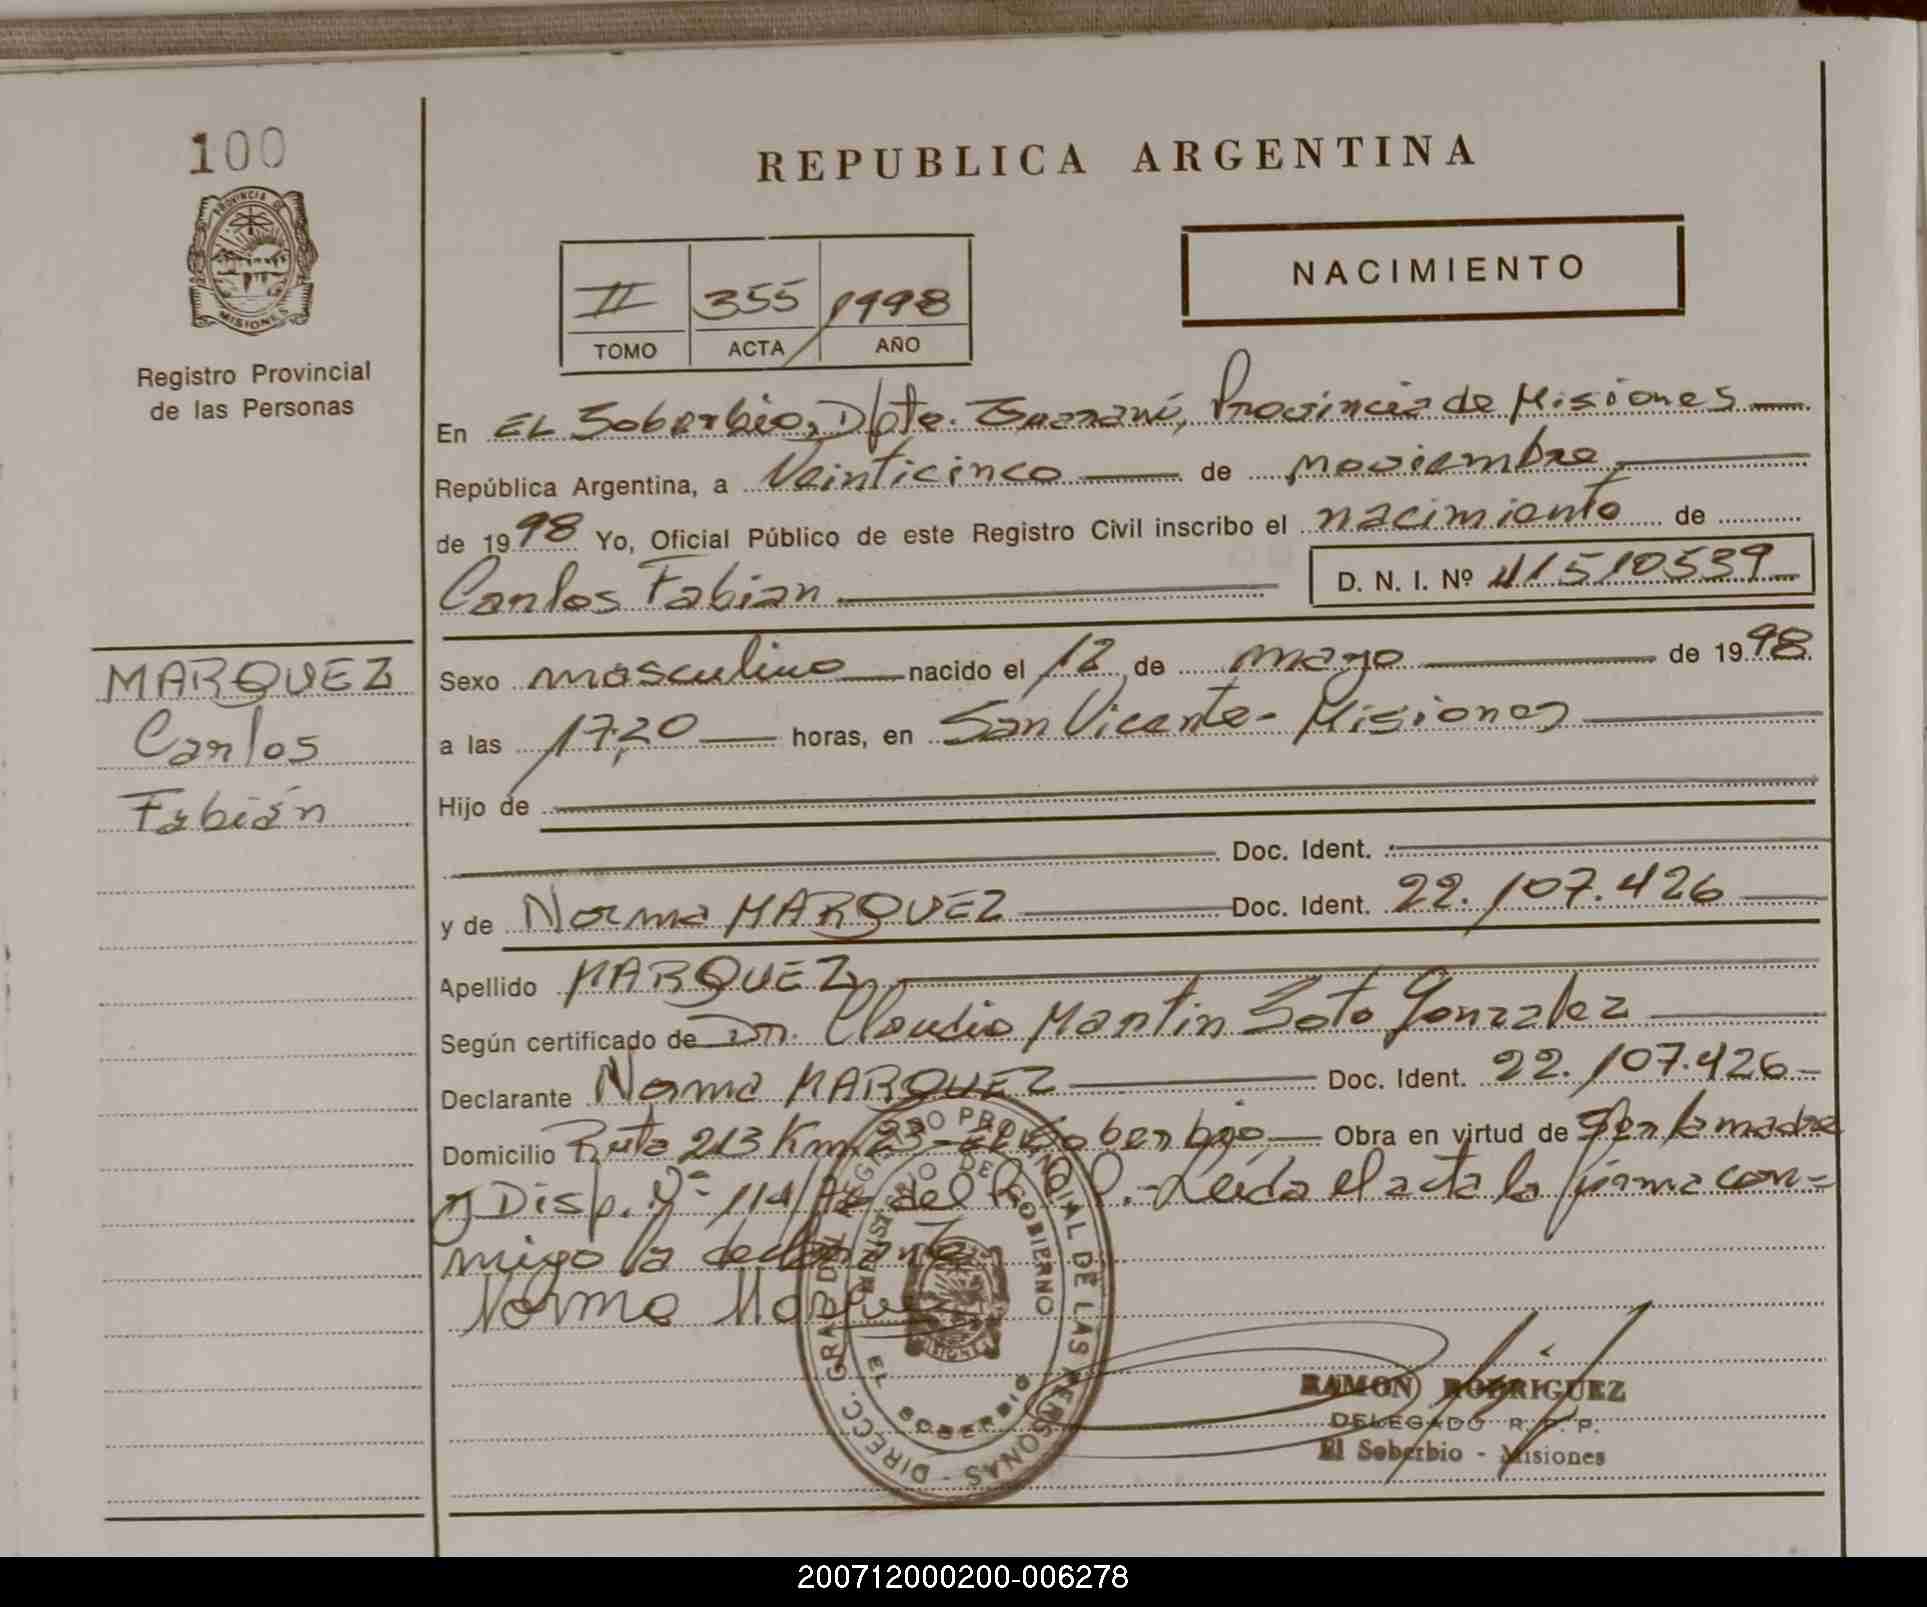 100
PROVINCIA DE
MISIONES
Registro Provincial
de las Personas
MARQUEZ
Carlos
Fabián
REPUBLICA ARGENTINA
II 355 1998
TOMO ACTA AÑO
NACIMIENTO
En EL Soberbio, Dpto. Guaraní, Provincia de Misiones
República Argentina, a Veinticinco de noviembre
de 1998 Yo, Oficial Público de este Registro Civil inscribo el nacimiento de
Carlos Fabian D. N. I. Nº 41510539
Sexo masculino nacido el 12 de mayo de 1998
a las 17,20 horas, en San Vicente - Misiones
Hijo de
Doc. Ident.
y de Norma MARQUEZ Doc. Ident. 22.107.426
Apellido MARQUEZ
Según certificado de Dr. Claudio Martin Soto Gonzalez
Declarante Norma MARQUEZ Doc. Ident. 22.107.426
Domicilio Ruta 213 Km 23 - El Soberbio Obra en virtud de Ser la madre
y Disp. Nº 114/ del . - Leída el acta la firma con=
migo la declarante
Norma Marquez
DIRECC. GRAL. DEL REGISTRO PROVINCIAL DE LAS PERSONAS
MINISTERIO DE GOBIERNO
MISIONES
EL SOBERBIO
RAMON RODRIGUEZ
DELEGADO R. P. P.
El Soberbio - Misiones
200712000200-006278